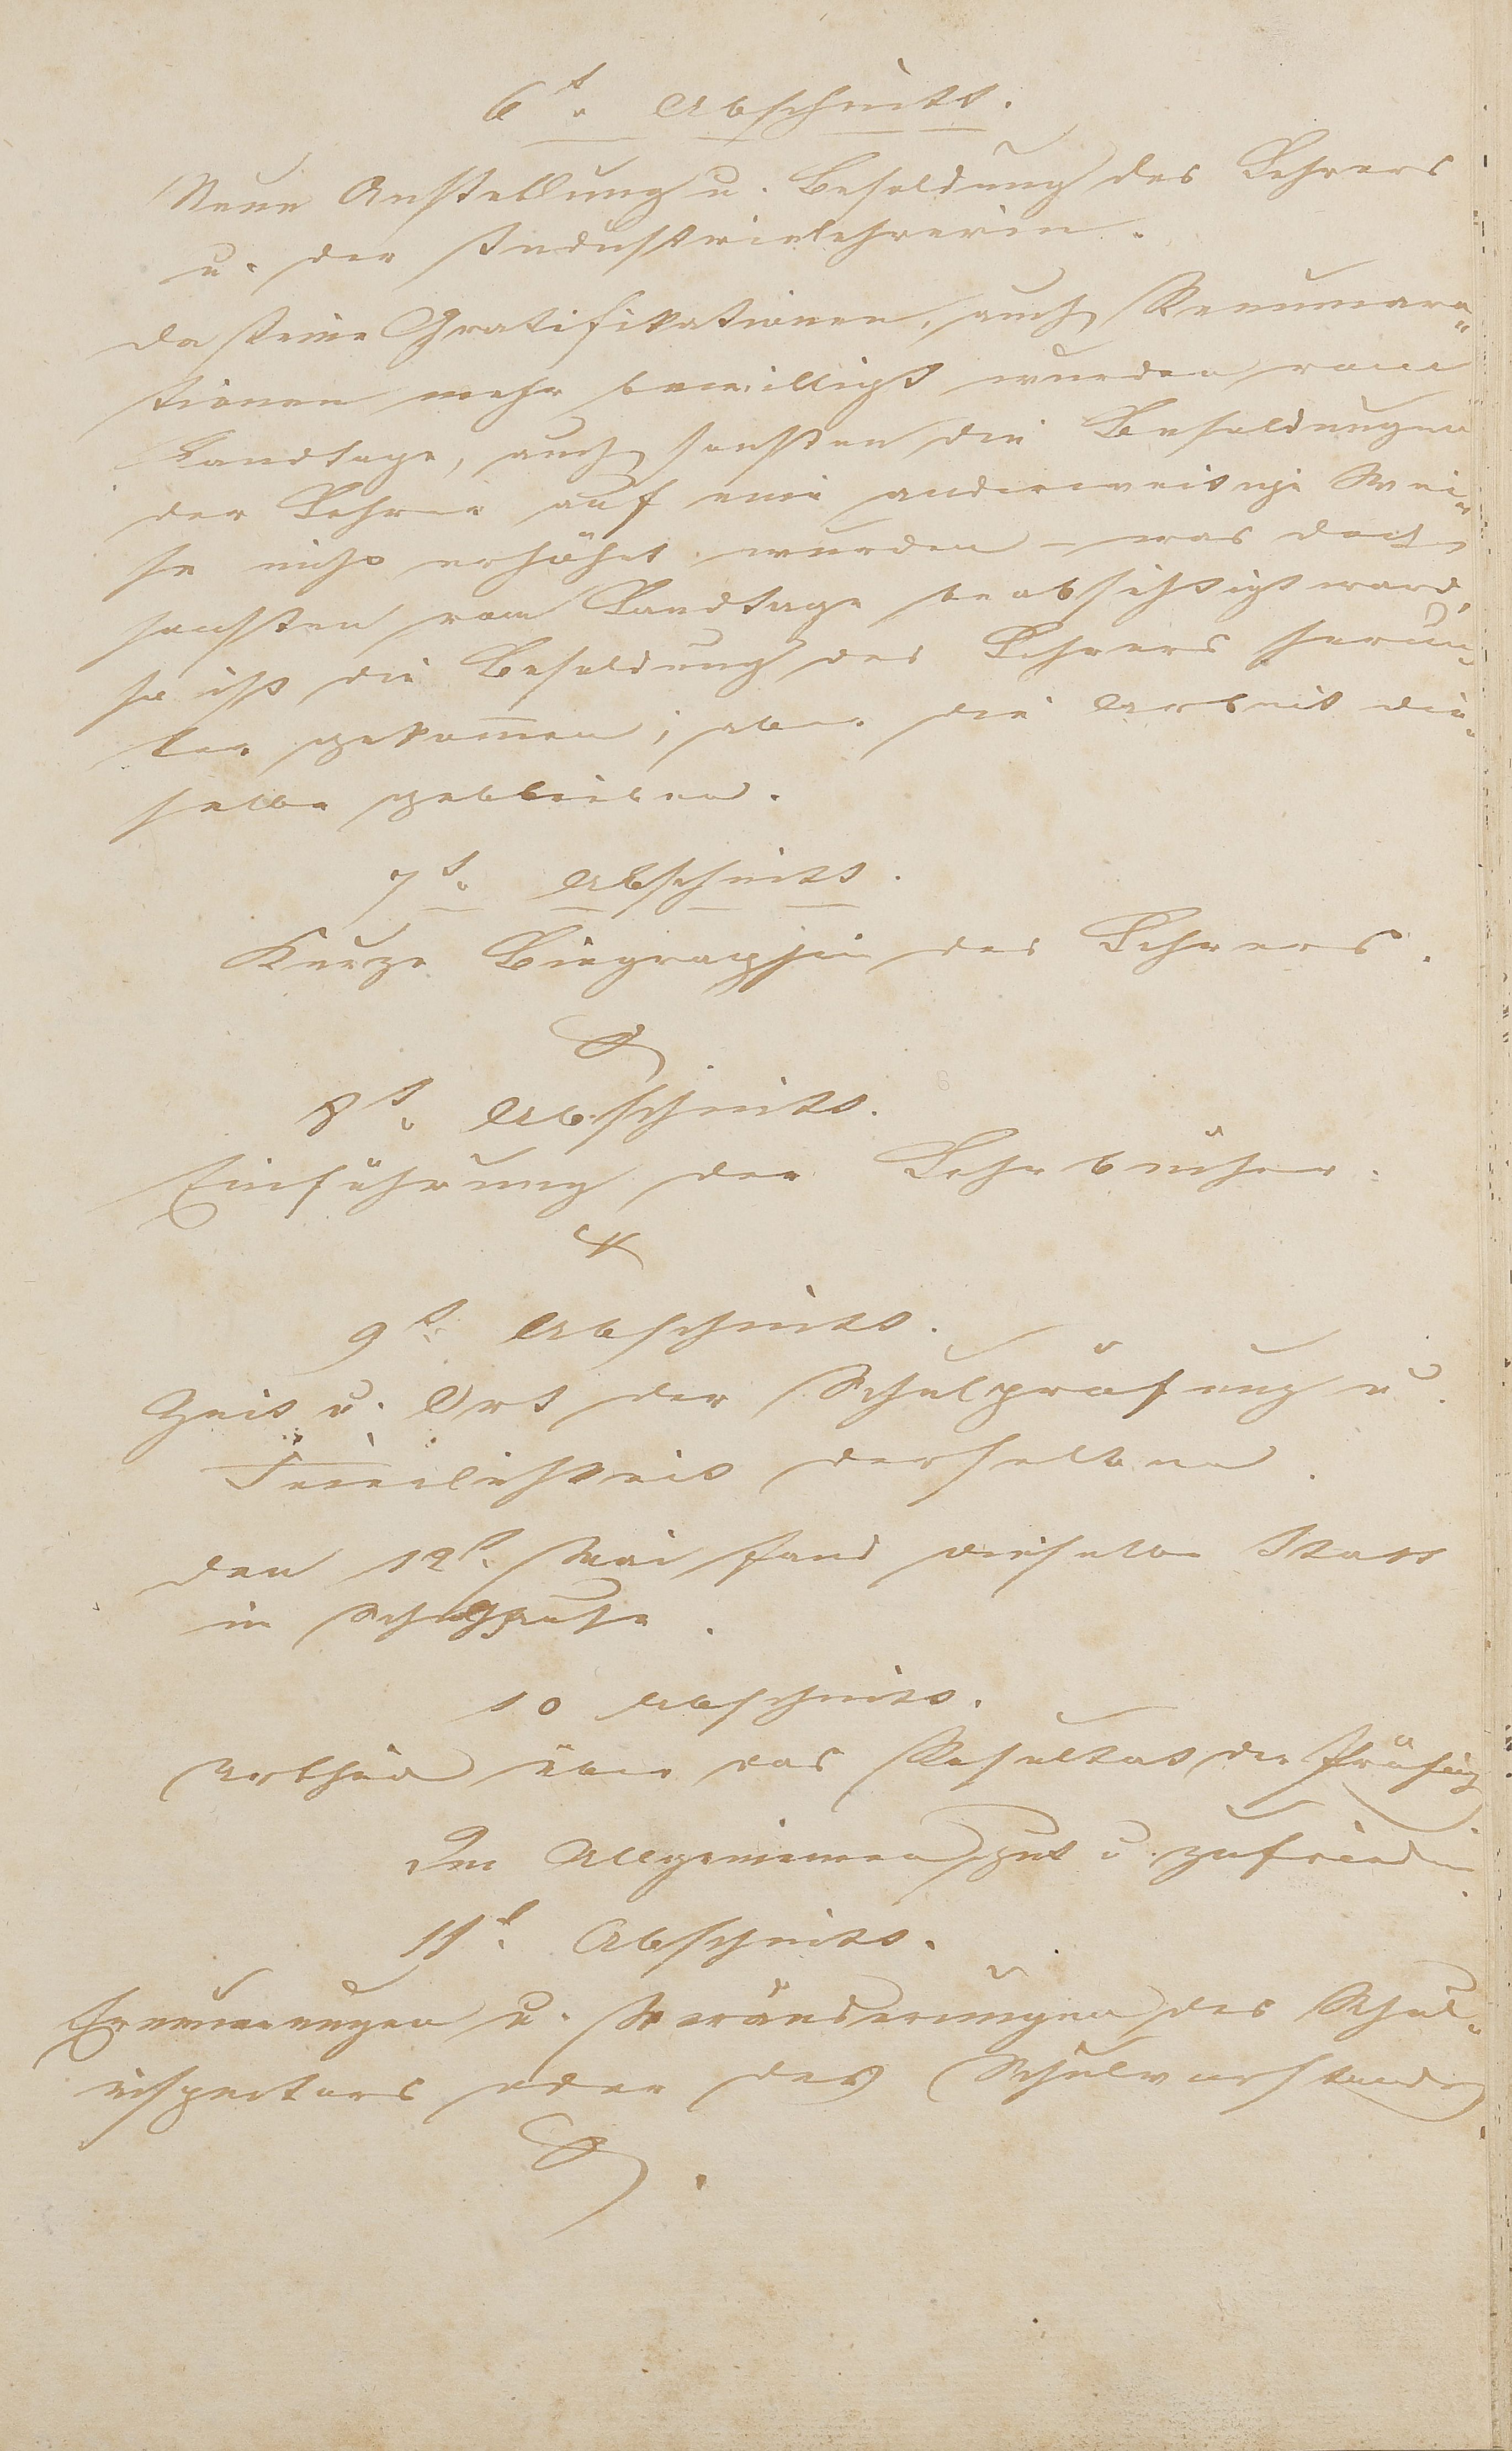 6t. Abschnitt.
Neue Anstellung u. Besoldung des Lehrers
u. der Industrielehrerin.
Da keine Gratifikationen, auch Remunera-
tionen mehr bewilligt wurden vom
Landtage, auch sonsten die Besoldungen
der Lehrer auf eine anderweitige Wei-
se nicht erhöhet wurden – was doch
sonsten vom Landtage beabsichtigt ward,
so ist die Besoldung des Lehrers herun-
ter gekom̄en; aber die Arbeit die-
selbe geblieben.
7t. Abschnitt.
Kurze Biographie des Lehrers.
8t. Abschnitt.
Einführung der Lehrbücher.
9t. Abschnitt.
Zeit u. Ort der Schulprüfung u.
Feierlichkeit derselben.
Den 12t. Mai fand dieselbe Statt
im Schulhause.
10 Abschnitt.
Urtheil über das Resultat der Prüfung
Im Allgemeinen gut u. zufrieden.
11t. Abschnitt.
Ernennungen u. Veränderungen des Schul-
inspectors oder des Schulvorstandes